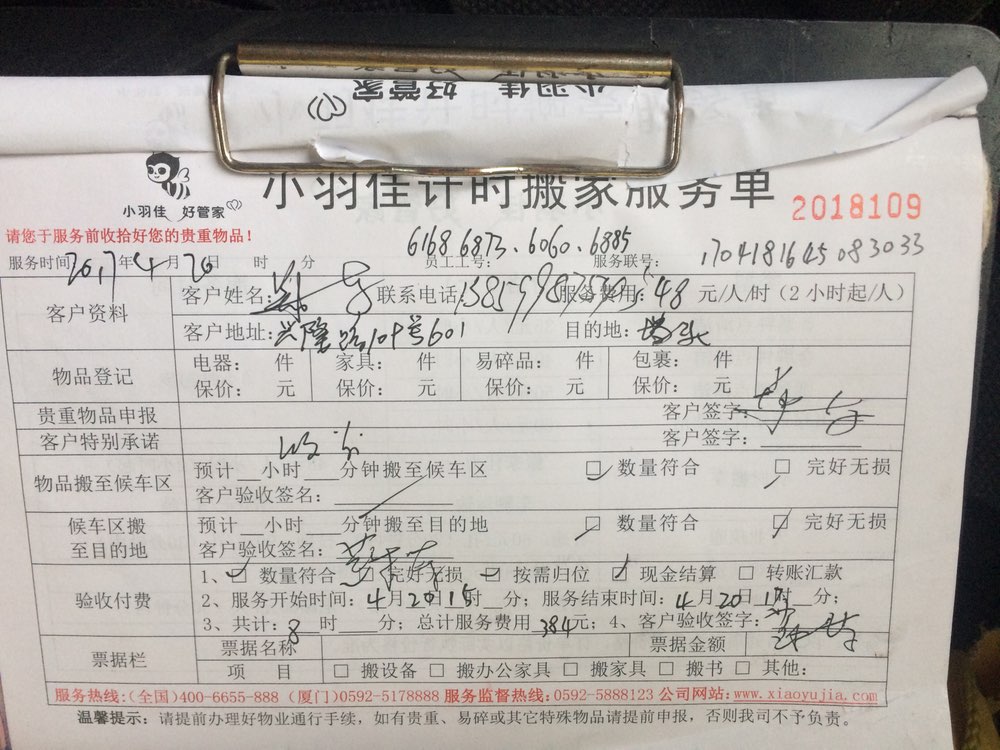 小羽佳 好管家
小羽佳计时搬家服务单
小羽佳 好管家
2018109
请您于服务前收拾好您的贵重物品！
6168 6873.6060.6885
服务时间2017年4月20日 时 分 员工工号： 服务联号： 1704181645083033
客户资料 客户姓名： 联系电话 服务费用：48元/人/时（2小时起/人）
客户地址：兴隆路109号601 目的地：
物品登记 电器： 件 家具： 件 易碎品： 件 包裹： 件
保价： 元 保价： 元 保价： 元 保价： 元
贵重物品申报 客户签字：
客户特别承诺 客户签字：
物品搬至候车区 预计__小时___分钟搬至候车区 □数量符合 □ 完好无损
客户验收签名：
候车区搬至目的地 预计__小时___分钟搬至目的地 □ 数量符合 □ 完好无损
客户验收签名：
验收付费 1、□ 数量符合 □ 完好无损 □ 按需归位 □ 现金结算 □ 转账汇款
2、服务开始时间：4月20日15时__分；服务结束时间：4月20日17时__分；
3、共计：8时___分；总计服务费用384元；4、客户验收签字：
票据栏 票据名称 票据金额
项 目 □ 搬设备 □ 搬办公家具 □ 搬家具 □ 搬书 □ 其他：
服务热线：(全国)400-6655-888 (厦门)0592-5178888 服务监督热线：0592-5888123 公司网站：www.xiaoyujia.com
温馨提示：请提前办理好物业通行手续，如有贵重、易碎或其它特殊物品请提前申报，否则我司不予负责。